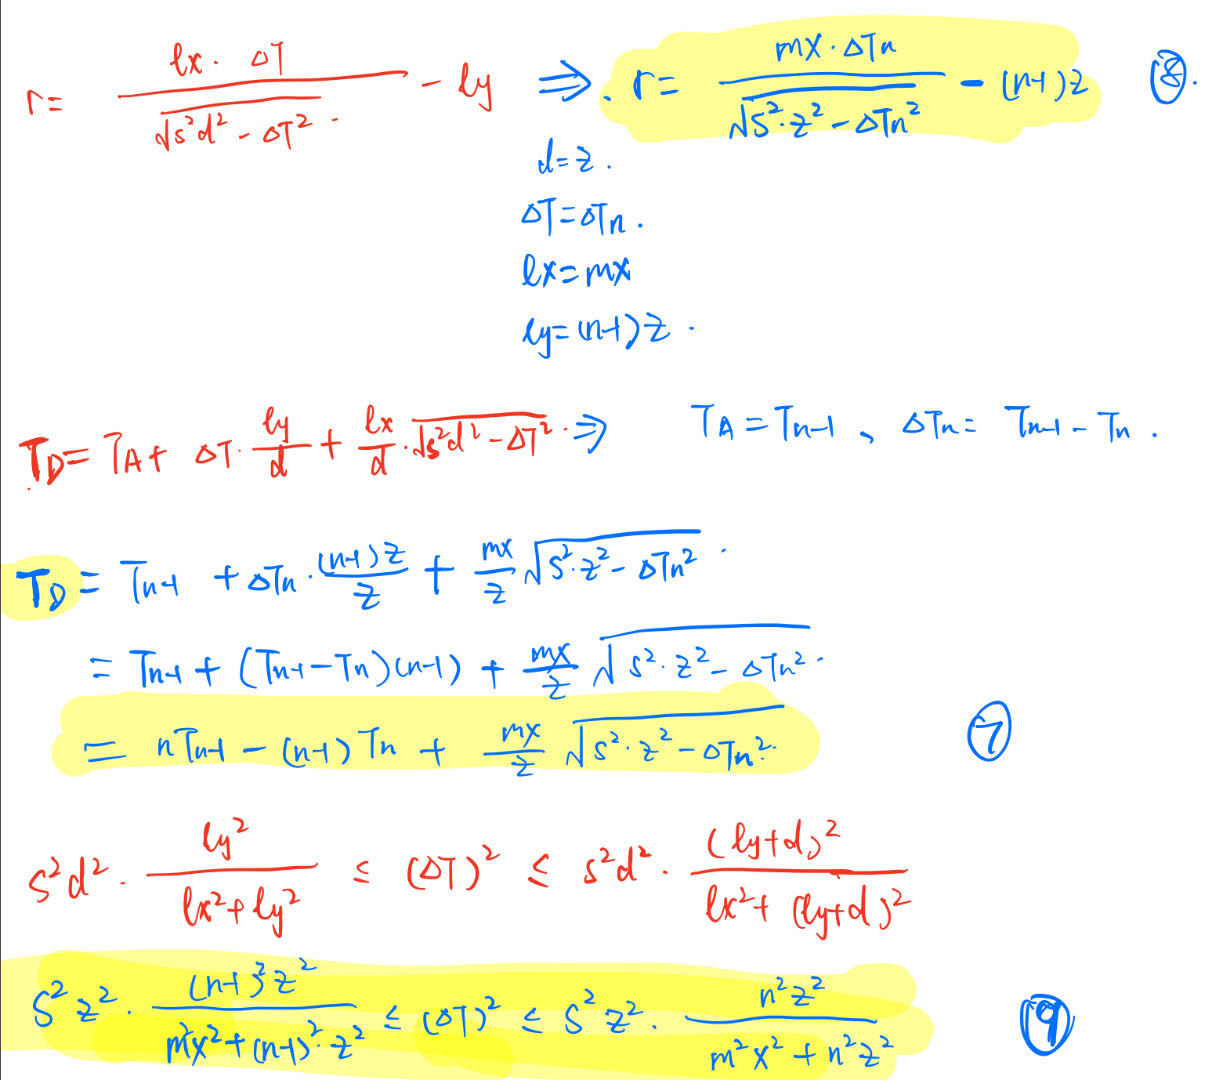 r = lx · ΔT / √(s²d² - ΔT²) - ly ⇒ r = mx · ΔTn / √(s²·z² - ΔTn²) - (n-1)z ⑧.
d = z.
ΔT = ΔTn.
lx = mx
ly = (n-1)z.
T_D = T_A + ΔT · ly/d + lx/d · √(s²d² - ΔT²) ⇒ T_A = Tn-1 、 ΔTn = Tn-1 - Tn.
T_D = Tn-1 + ΔTn · (n-1)z/z + mx/z √(s²·z² - ΔTn²).
= Tn-1 + (Tn-1 - Tn)(n-1) + mx/z √(s²·z² - ΔTn²).
= nTn-1 - (n-1)Tn + mx/z √(s²·z² - ΔTn²). ⑦
s²d² · ly²/(lx² + ly²) ≤ (ΔT)² ≤ s²d² · (ly+d)²/(lx² + (ly+d)²)
s²z² · (n-1)²z²/(m²x² + (n-1)²·z²) ≤ (ΔT)² ≤ s²z² · n²z²/(m²x² + n²z²) ⑨